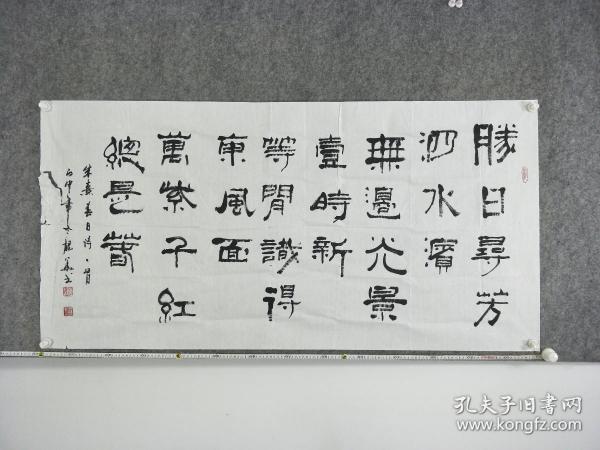 勝日尋芳
泗水濱
無邊光景
壹時新
等閒識得
東風面
萬紫千紅
總是春
朱熹春日詩一首
丙申年
孔夫子旧书网
www.kongfz.com